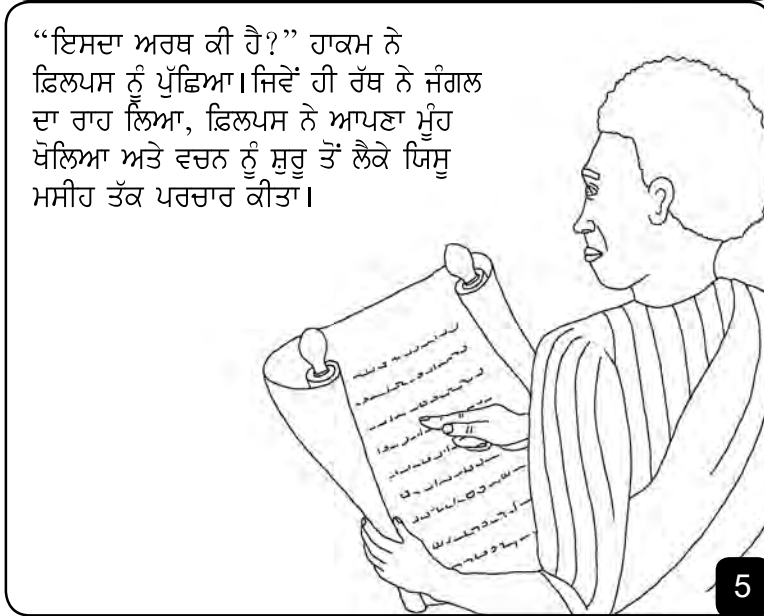 “ਇਸਦਾ ਅਰਥ ਕੀ ਹੈ?” ਹਾਕਮ ਨੇ
ਫ਼ਿਲਪਸ ਨੂੰ ਪੁੱਛਿਆ।ਜਿਵੇਂ ਹੀ ਰੱਥ ਨੇ ਜੰਗਲ
ਦਾ ਰਾਹ ਲਿਆ, ਫ਼ਿਲਪਸ ਨੇ ਆਪਣਾ ਮੂੰਹ
ਖੋਲਿਆ ਅਤੇ ਵਚਨ ਨੂੰ ਸ਼ੁਰੂ ਤੋਂ ਲੈਕੇ ਯਿਸੂ
ਮਸੀਹ ਤੱਕ ਪਰਚਾਰ ਕੀਤਾ।
5